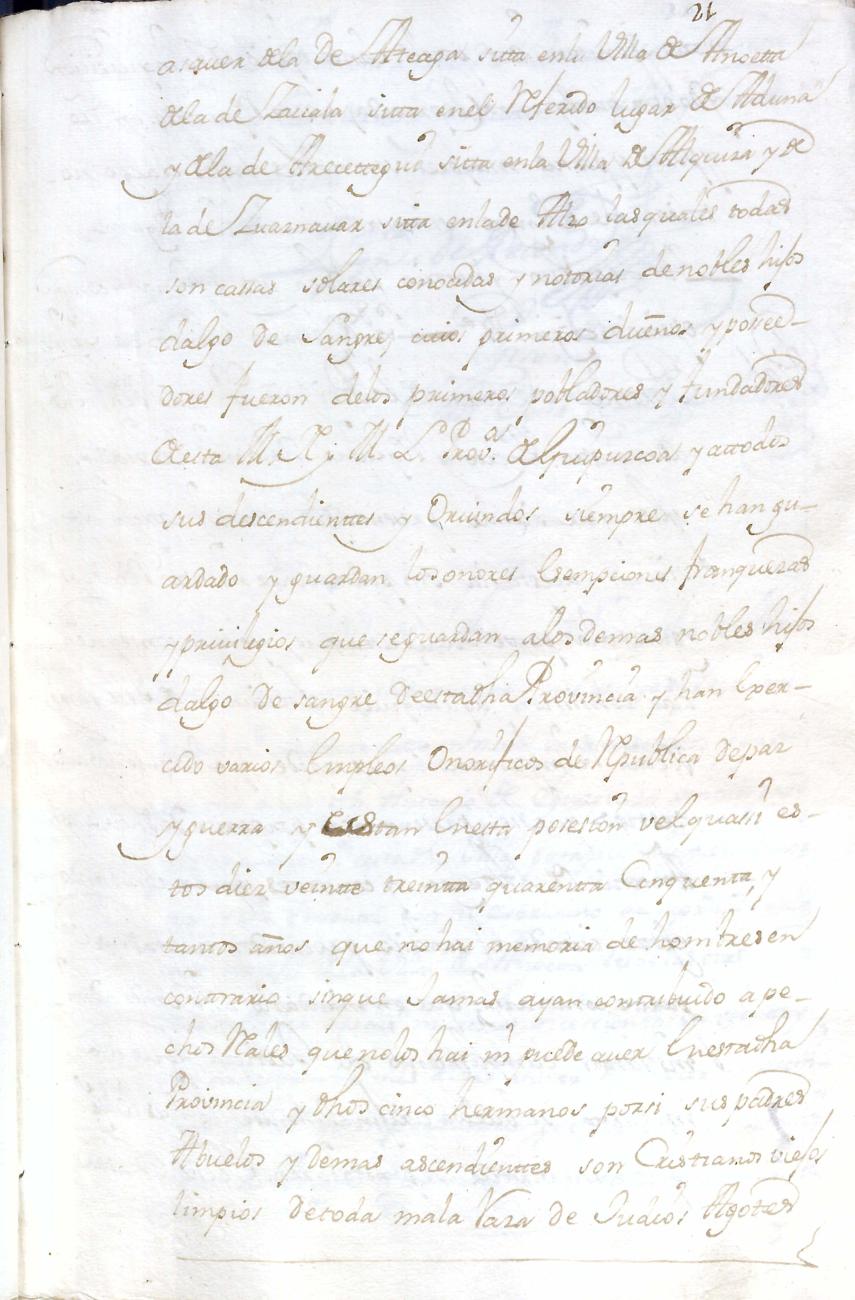 21
asaver de la De Atteaga sitta en la Villa de Anoetta
de la de Zaicala sitta en el Referido lugar de Aduna
y de la de Arecettegui sitta en la Villa de Alquiza y de
la de Zuaznauar sitta en la de Atzo las quales todas
son cassas solares conocidas y notorias de nobles hijos
dalgo de Sangre, cuios primeros dueños y poseed-
dores fueron delos primeros pobladores y fundadores
de esta M. N. y M. L. Prov.ª de Guipuzcoa y attodos
sus descendienttes y Oriundos siempre se han gu-
ardado y guardan los onores Esempciones franquezas
y privilegios que se guardan alos demas nobles hijos
dalgo de sangre de esta dha Provincia y han Exer-
cido varios Empleos Onorificos de Republica de paz
y guerra y estan En esta posesion velquassi es-
tos diez veintte treintta quarentta Cinquentta, y
tantos años que no hai memoria de hombres en
conttrario sin que Jamas ayan contribuido a pe-
chos Reales que nolos hai ni puede aver En esta dha
Provincia y dhos cinco hermanos por si sus padres
Abuelos y demas ascendienttes son Cristianos viejos
limpios de toda mala Raza de Judios Agotes